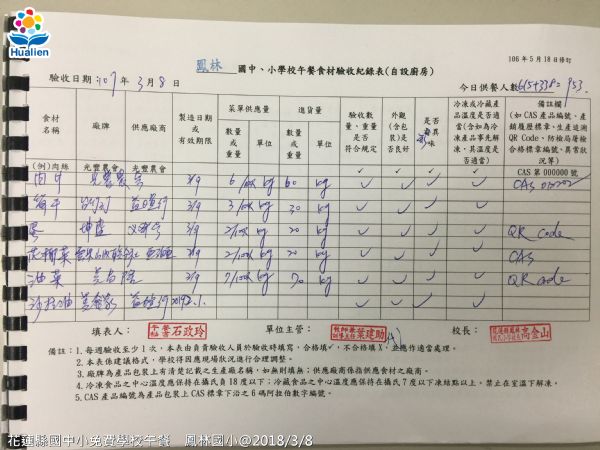 Hualien
106年5月18日修訂
鳳林 國中、小學校午餐食材驗收紀錄表(自設廚房)
驗收日期:107年3月8日
今日供餐人數615+338=953
食材名稱 廠牌 供應廠商 製造日期或有效期限 菜單供應量 進貨量 驗收數量、重量是否符合規定 外觀(含包裝)是否良好 是否異味 冷凍或冷藏產品溫度是否適當(含如為冷凍產品事先解凍,其溫度是否適當) 備註欄(如CAS產品編號、產銷履歷標章、生產追溯QR Code、防檢局屠檢合格標章編號、異常狀況等)
數量或重量 單位 數量或重量 單位
(例)肉絲 光豐農會 光豐農會 ✓ ✓ ✓ ✓ CAS 第 000000 號
3/9 kg 60 kg ✓ ✓ ✓ ✓ CAS
3/9 kg 30 kg ✓ ✓ ✓ ✓
坤盛 3/9 kg 20 kg ✓ ✓ ✓ ✓ QR code
3/9 kg 20 kg ✓ ✓ ✓ ✓ CAS
油菜 3/9 kg 70 kg ✓ ✓ ✓ ✓ QR code
沙拉油 ✓ ✓ ✓ ✓
填表人: 石政玲 單位主管: 葉建助 校長: 向金山
備註:1.每週驗收至少1次,本表由負責驗收人員於驗收時填寫,合格填✓,不合格填X,並應作適當處理。
2.本表係建議格式,學校得因應現場狀況進行合理調整。
3.廠牌為產品包裝上有清楚記載之生產廠名稱,如無則填無;供應廠商係指供應食材之廠商。
4.冷凍食品之中心溫度應保持在攝氏負18度以下;冷藏食品之中心溫度應保持在攝氏7度以下凍結點以上。禁止在室溫下解凍。
5.CAS產品編號為產品包裝上CAS標章下沿之6碼阿拉伯數字編號。
花蓮縣國中小免費學校午餐 鳳林國小@2018/3/8